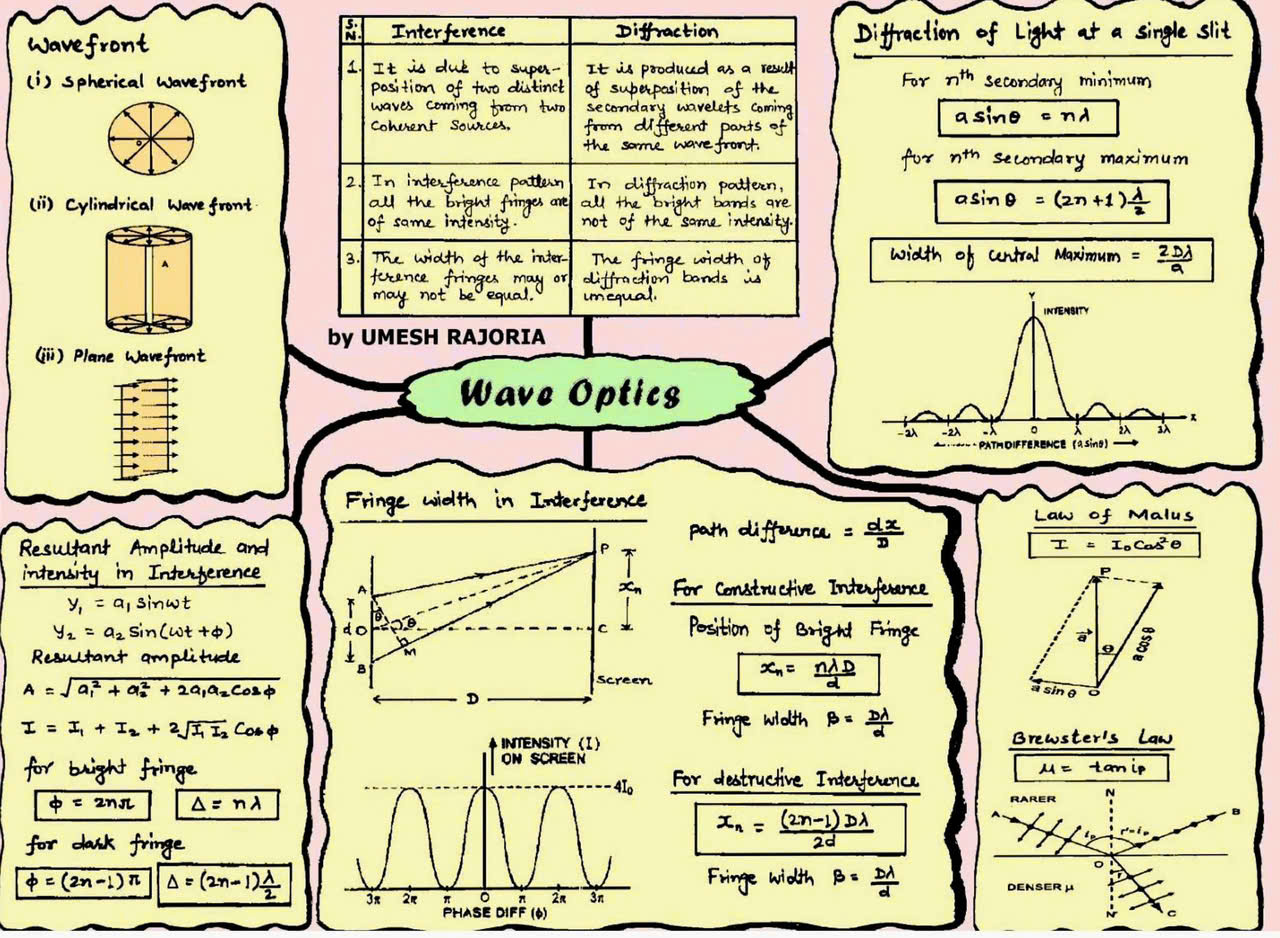 Wavefront
(i) Spherical Wavefront
O
(ii) Cylindrical Wavefront
A
(iii) Plane Wavefront
S.N. Interference Diffraction
1. It is due to super-
position of two distinct
waves coming from two
Coherent Sources.
It is produced as a result
of superposition of the
secondary wavelets coming
from different parts of
the same wavefront.
2. In interference pattern
all the bright fringes are
of same intensity.
In diffraction pattern,
all the bright bands are
not of the same intensity.
3. The width of the inter-
ference fringes may or
may not be equal.
The fringe width of
diffraction bands is
unequal.
by UMESH RAJORIA
Wave Optics
Diffraction of Light at a single slit
For nth secondary minimum
a sinθ = nλ
for nth secondary maximum
a sinθ = (2n+1) λ/2
Width of central Maximum = 2Dλ/a
Y
INTENSITY
-2λ -2λ -λ 0 λ 2λ 3λ X
PATHDIFFERENCE (a sinθ)
Resultant Amplitude and
intensity in Interference
y₁ = a₁ sinωt
y₂ = a₂ sin(ωt + ϕ)
Resultant amplitude
A = √a₁² + a₂² + 2a₁a₂ Cosϕ
I = I₁ + I₂ + 2√I₁ I₂ Cosϕ
for bright fringe
ϕ = 2nπ Δ = nλ
for dark fringe
ϕ = (2n-1)π Δ = (2n-1) λ/2
Fringe width in Interference
P
A
xₙ
θ
d O θ C
M
B
Screen
D
INTENSITY (I)
ON SCREEN
4I₀
3π 2π π 0 π 2π 3π
PHASE DIFF (ϕ)
path difference = dx/D
For Constructive Interference
Position of Bright Fringe
xₙ = nλD/d
Fringe width β = Dλ/d
For destructive Interference
xₙ = (2n-1)Dλ/2d
Fringe width β = Dλ/d
Law of Malus
I = I₀ Cos²θ
P
a
θ
a cosθ
a sinθ O
Brewster's Law
μ = tan ip
N
RARER
A B
ip r=ip
O
r
DENSER μ
N' C